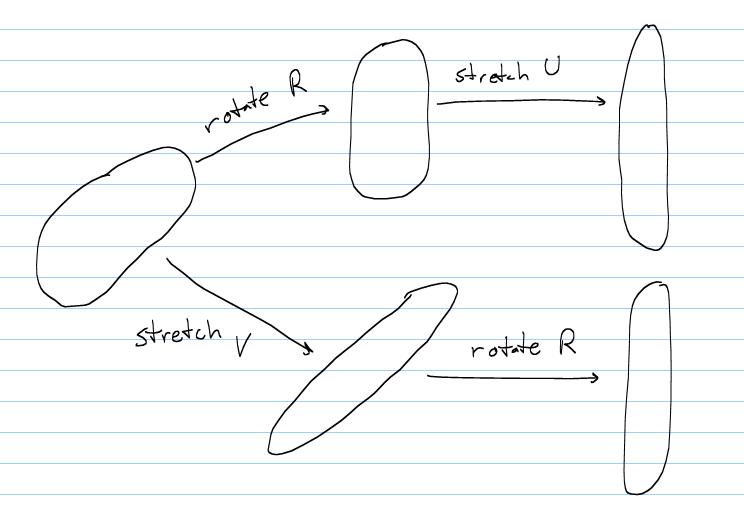 rotate R
stretch U
stretch V
rotate R